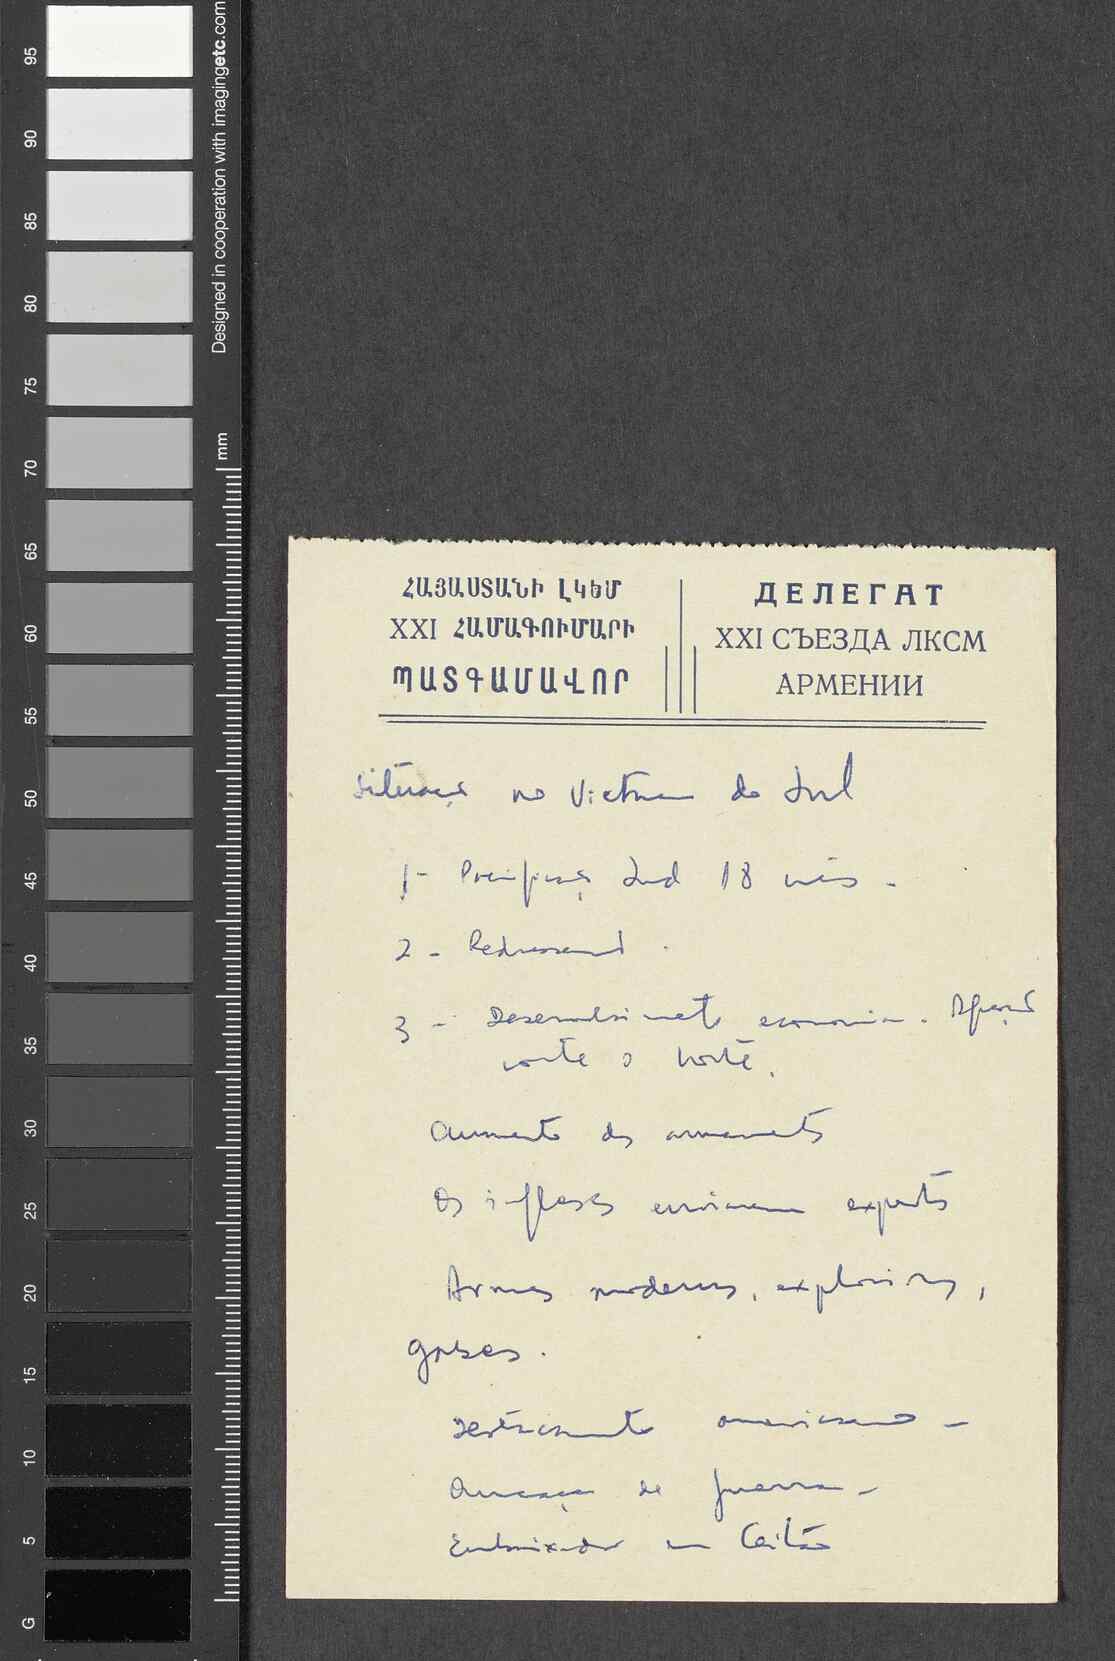 ՀԱՅԱՍՏԱՆԻ ԼԿԵՄ
XXI ՀԱՄԱԳՈՒՄԱՐԻ
ՊԱՏԳԱՄԱՎՈՐ
ДЕЛЕГАТ
XXI СЪЕЗДА ЛКСМ
АРМЕНИИ
Situação no Vietnam do Sul
1- Pacificação Sul 18 meses.
2-
3- Desenvolvimento economia.
norte.
Aumento dos armamentos
Os ingleses enviaram experts
Armas modernas, explosivos,
gases.
Destacamento americano -
Ameaça de guerra -
Embaixador em
Designed in cooperation with imagingetc.com
mm
95
90
85
80
75
70
65
60
55
50
45
40
35
30
25
20
15
10
5
G